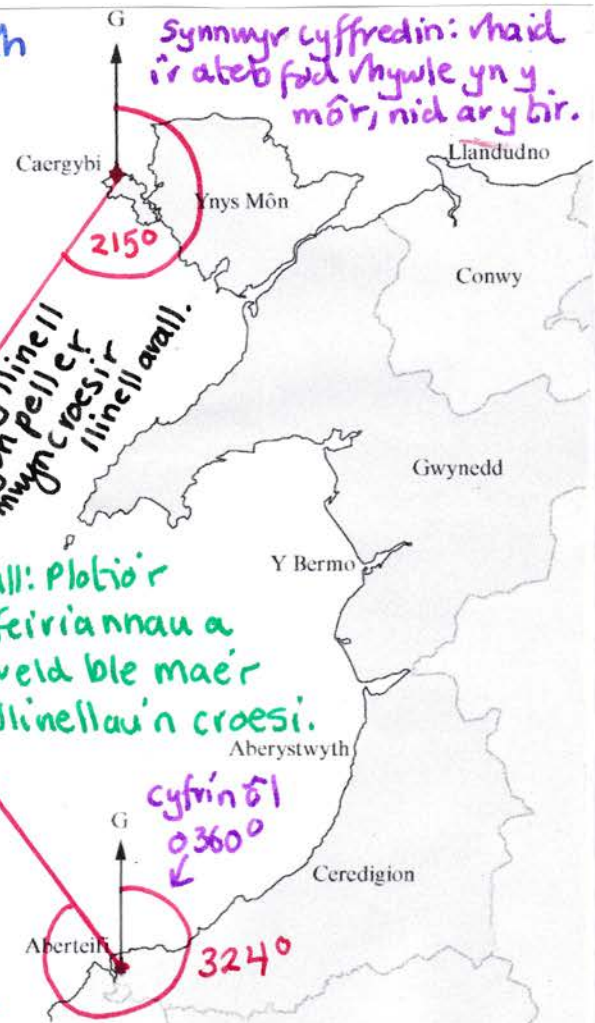 G
Synnwyr cyffredin: rhaid
i'r ateb fod rhywle yn y
môr, nid ar y tir.
Llandudno
Caergybi
Ynys Môn
215°
Conwy
llinell
pell er
mwyn croesi'r
llinell arall.
Gwynedd
Y Bermo
Plotio'r
a
ble mae'r
llinellau'n croesi.
Aberystwyth
cyfrif n ôl
o 360°
G
Ceredigion
Aberteifi
324°